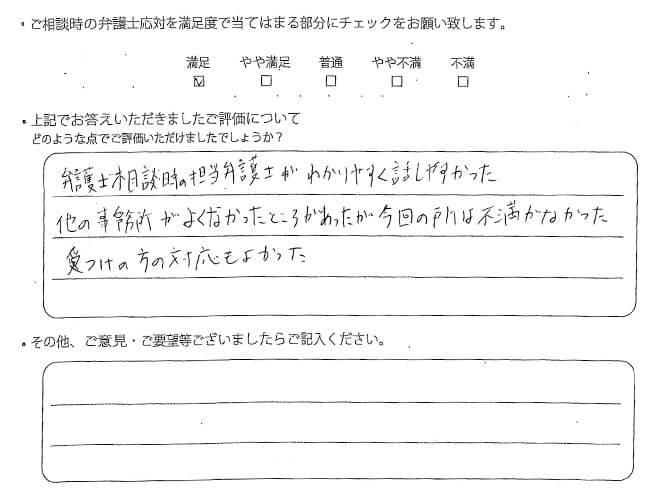 ・ご相談時の弁護士応対を満足度で当てはまる部分にチェックをお願い致します。
満足 やや満足 普通 やや不満 不満
☑ □ □ □ □
・上記でお答えいただきましたご評価について
どのような点でご評価いただけましたでしょうか？
弁護士相談時の担当弁護士が わかりやすく話しやすかった
他の事務所がよくなかったところがあったが今回の所は不満がなかった
受つけの方の対応もよかった
・その他、ご意見・ご要望等ございましたらご記入ください。